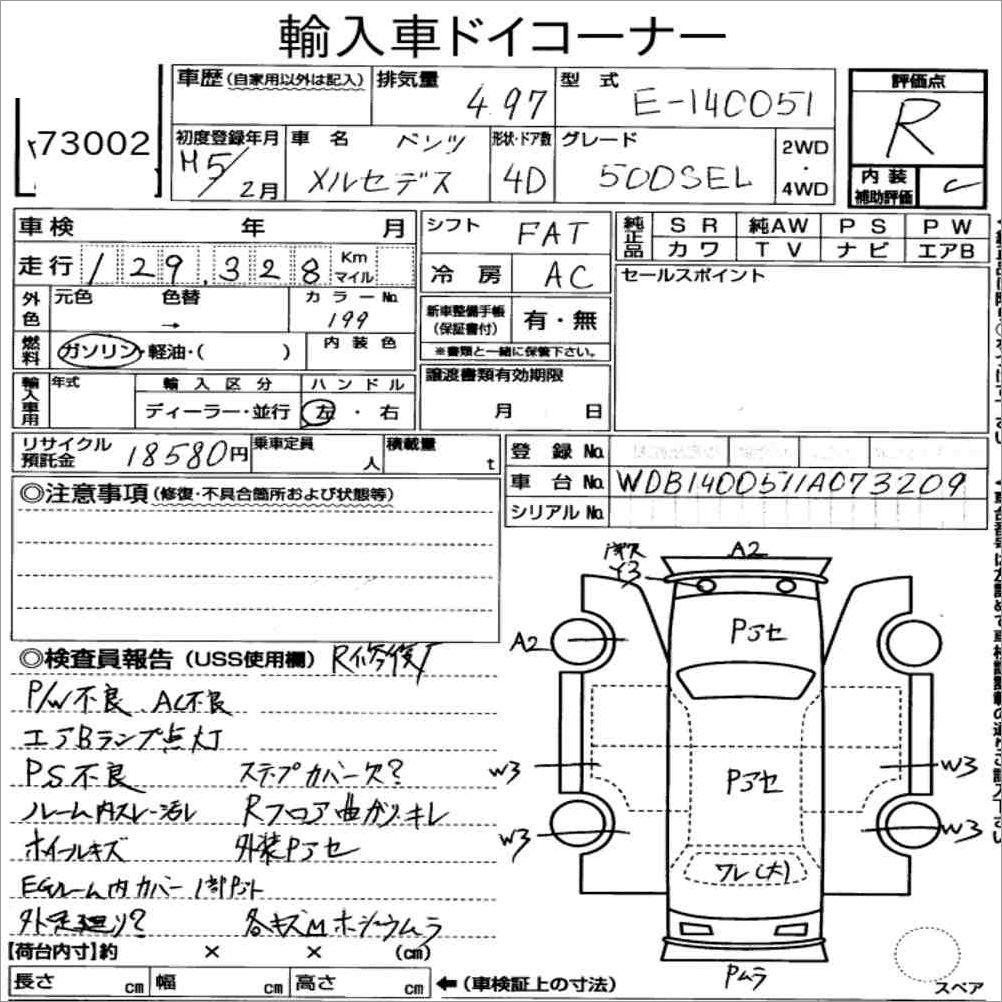 輸入車ドイコーナー
73002
車歴(自家用以外は記入) 排気量 4.97 型式 E-140051
評価点 R
初度登録年月 H5/2月 車名 ベンツ メルセデス 形状・ドア数 4D グレード 500SEL 2WD・4WD
内装補助評価 C
車検 年 月 シフト FAT 純正品 SR 純AW PS PW
カワ TV ナビ エアB
走行 129,328 Km マイル 冷房 AC
セールスポイント
外色 元色 色替 → カラーNo. 199 新車整備手帳(保証書付) 有・無
燃料 ガソリン・軽油・( ) 内装色 ※書類と一緒に保管下さい。
輸入車用 年式 輸入区分 ハンドル 譲渡書類有効期限
ディーラー・並行 左・右 月 日
リサイクル預託金 18580円 乗車定員 人 積載量 t
登録No.
車台No. WDB1400511A073209
シリアルNo.
◎注意事項(修復・不具合箇所および状態等)
A2
Y3
Pアセ
A2
◎検査員報告(USS使用欄) R修復
P/W不良 AC不良
エアBランプ点灯
PS不良 ステップカバー欠?
W3
Pアセ
W3
ルーム内スレ・汚レ Rフロア曲ガリ・キレ
ホイールキズ 外装Pアセ
W3
W3
ワレ(大)
EGルーム内カバー
各キズ
Pムラ
【荷台内寸】約 × × (cm)
長さ cm 幅 cm 高さ cm ←(車検証上の寸法)
スペア